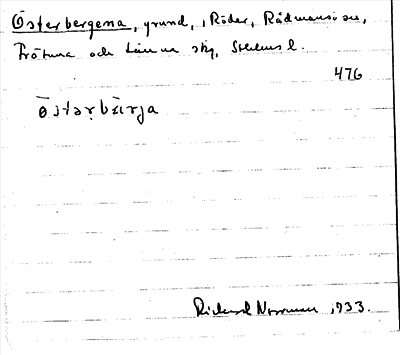 Österbergena, grund, i Röder, Rådmansö sn,
Frötuna och Länna skg, Stockhms l.
476
ø̄stərbæ̀rja
Rickard Norrman 1933.